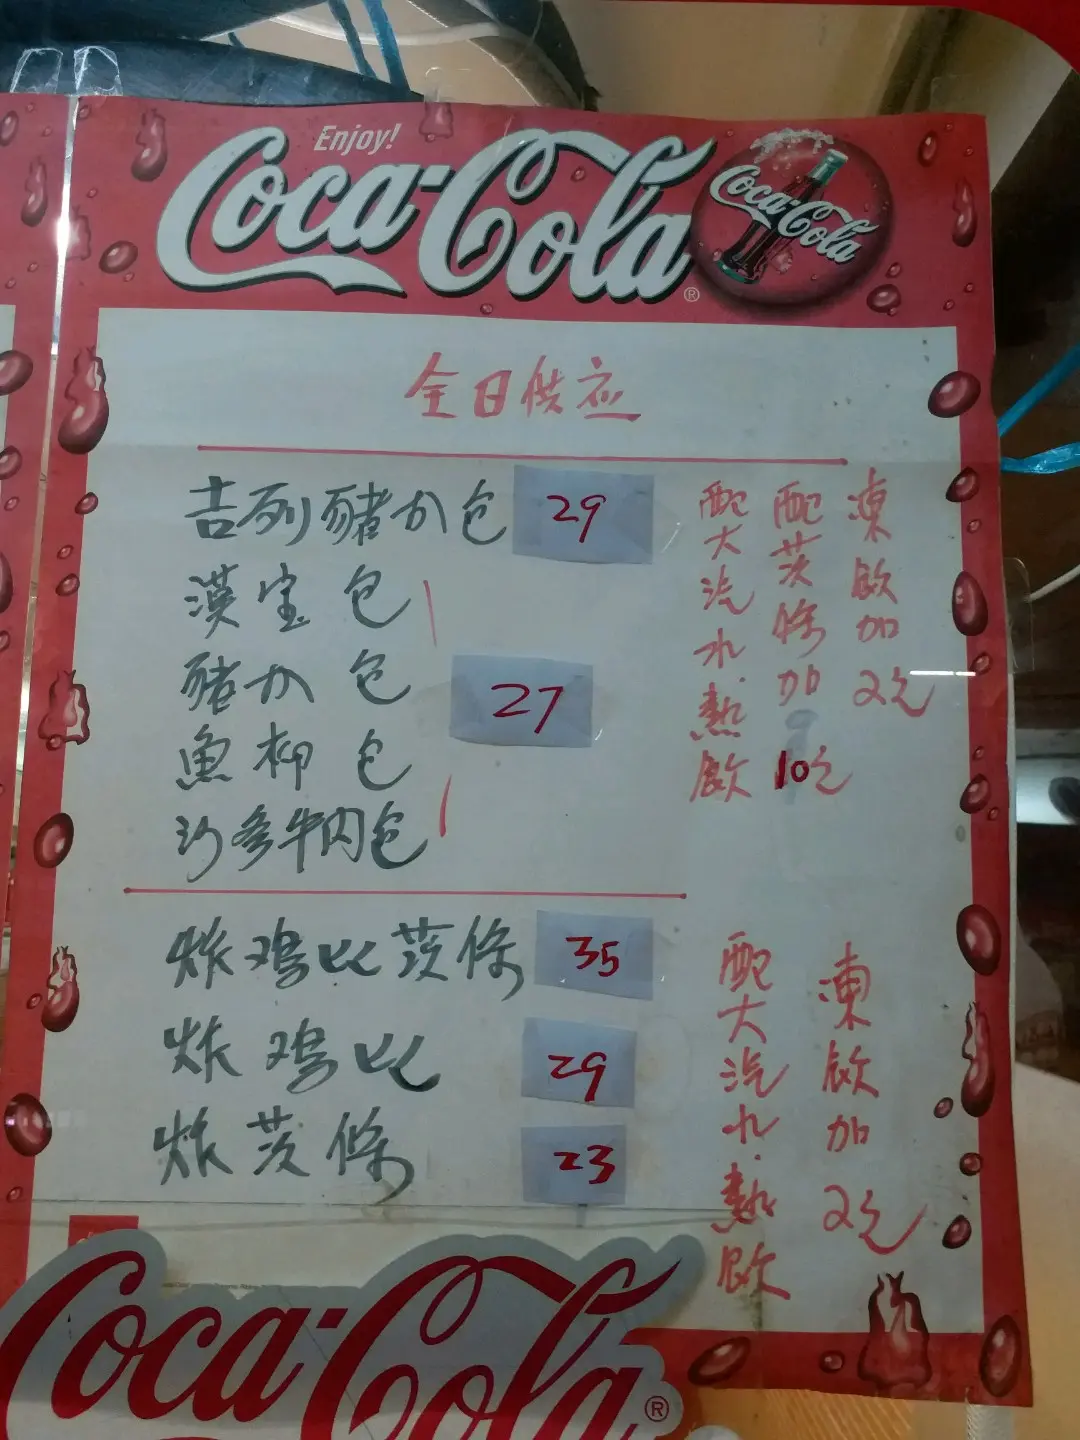 Enjoy!
Coca-Cola
®
Coca-Cola
全日供应
吉列豬扒包 29
漢宝包
豬扒包
27
魚柳包
沙爹牛肉包
配大汽水.熱飲
配茨條加10元
凍飲加2元
炸鸡比茨條 35
炸鸡比 29
炸茨條 23
配大汽水.熱飲
凍飲加2元
Coca-Cola
®